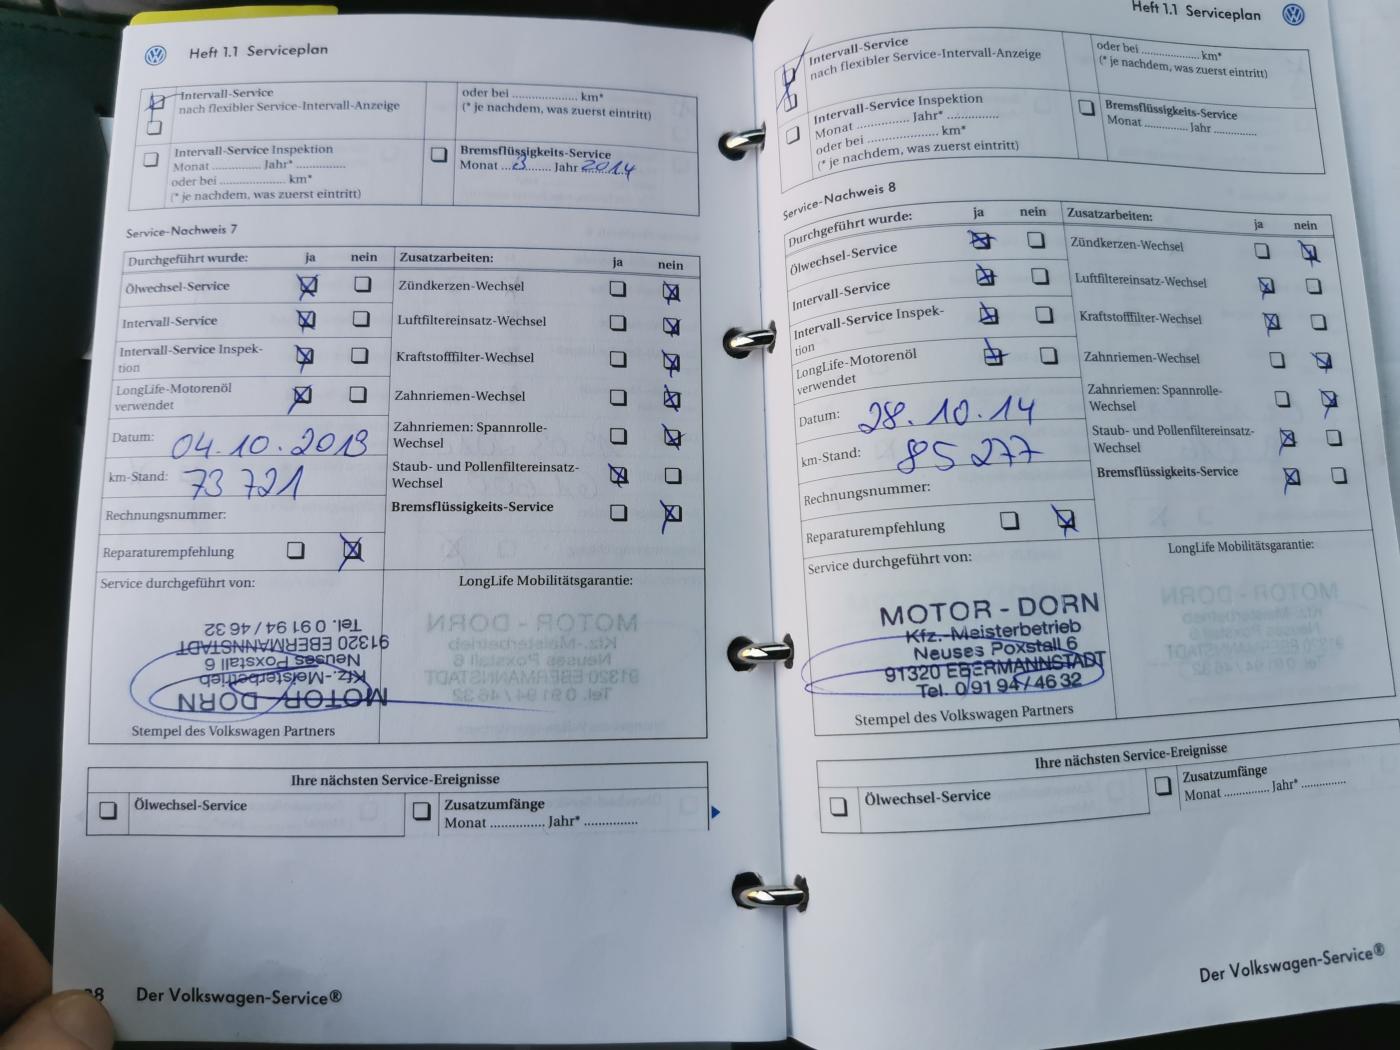 Heft 1.1 Serviceplan
Intervall-Service
nach flexibler Service-Intervall-Anzeige
oder bei .................... km*
(* je nachdem, was zuerst eintritt)
Intervall-Service Inspektion
Monat ............. Jahr* .............
oder bei .................... km*
(* je nachdem, was zuerst eintritt)
Bremsflüssigkeits-Service
Monat ...3....... Jahr 2014
Service-Nachweis 7
Durchgeführt wurde: ja nein
Ölwechsel-Service
Intervall-Service
Intervall-Service Inspek-
tion
LongLife-Motorenöl
verwendet
Datum: 04.10.2013
km-Stand: 73 721
Rechnungsnummer:
Reparaturempfehlung
Zusatzarbeiten: ja nein
Zündkerzen-Wechsel
Luftfiltereinsatz-Wechsel
Kraftstofffilter-Wechsel
Zahnriemen-Wechsel
Zahnriemen: Spannrolle-
Wechsel
Staub- und Pollenfiltereinsatz-
Wechsel
Bremsflüssigkeits-Service
Service durchgeführt von:
MOTOR - DORN
Kfz.-Meisterbetrieb
Neuses Poxstall 6
91320 EBERMANNSTADT
Tel. 0 91 94 / 46 32
Stempel des Volkswagen Partners
LongLife Mobilitätsgarantie:
Ihre nächsten Service-Ereignisse
Ölwechsel-Service
Zusatzumfänge
Monat .............. Jahr* .............
Der Volkswagen-Service®
Heft 1.1 Serviceplan
Intervall-Service
nach flexibler Service-Intervall-Anzeige
oder bei .................... km*
(* je nachdem, was zuerst eintritt)
Intervall-Service Inspektion
Monat ............. Jahr* .............
oder bei .................... km*
(* je nachdem, was zuerst eintritt)
Bremsflüssigkeits-Service
Monat ............. Jahr .............
Service-Nachweis 8
Durchgeführt wurde: ja nein
Ölwechsel-Service
Intervall-Service
Intervall-Service Inspek-
tion
LongLife-Motorenöl
verwendet
Datum: 28.10.14
km-Stand: 85 277
Rechnungsnummer:
Reparaturempfehlung
Zusatzarbeiten: ja nein
Zündkerzen-Wechsel
Luftfiltereinsatz-Wechsel
Kraftstofffilter-Wechsel
Zahnriemen-Wechsel
Zahnriemen: Spannrolle-
Wechsel
Staub- und Pollenfiltereinsatz-
Wechsel
Bremsflüssigkeits-Service
Service durchgeführt von:
MOTOR - DORN
Kfz.-Meisterbetrieb
Neuses Poxstall 6
91320 EBERMANNSTADT
Tel. 0 91 94 / 46 32
Stempel des Volkswagen Partners
LongLife Mobilitätsgarantie:
Ihre nächsten Service-Ereignisse
Ölwechsel-Service
Zusatzumfänge
Monat ............. Jahr* .............
Der Volkswagen-Service®